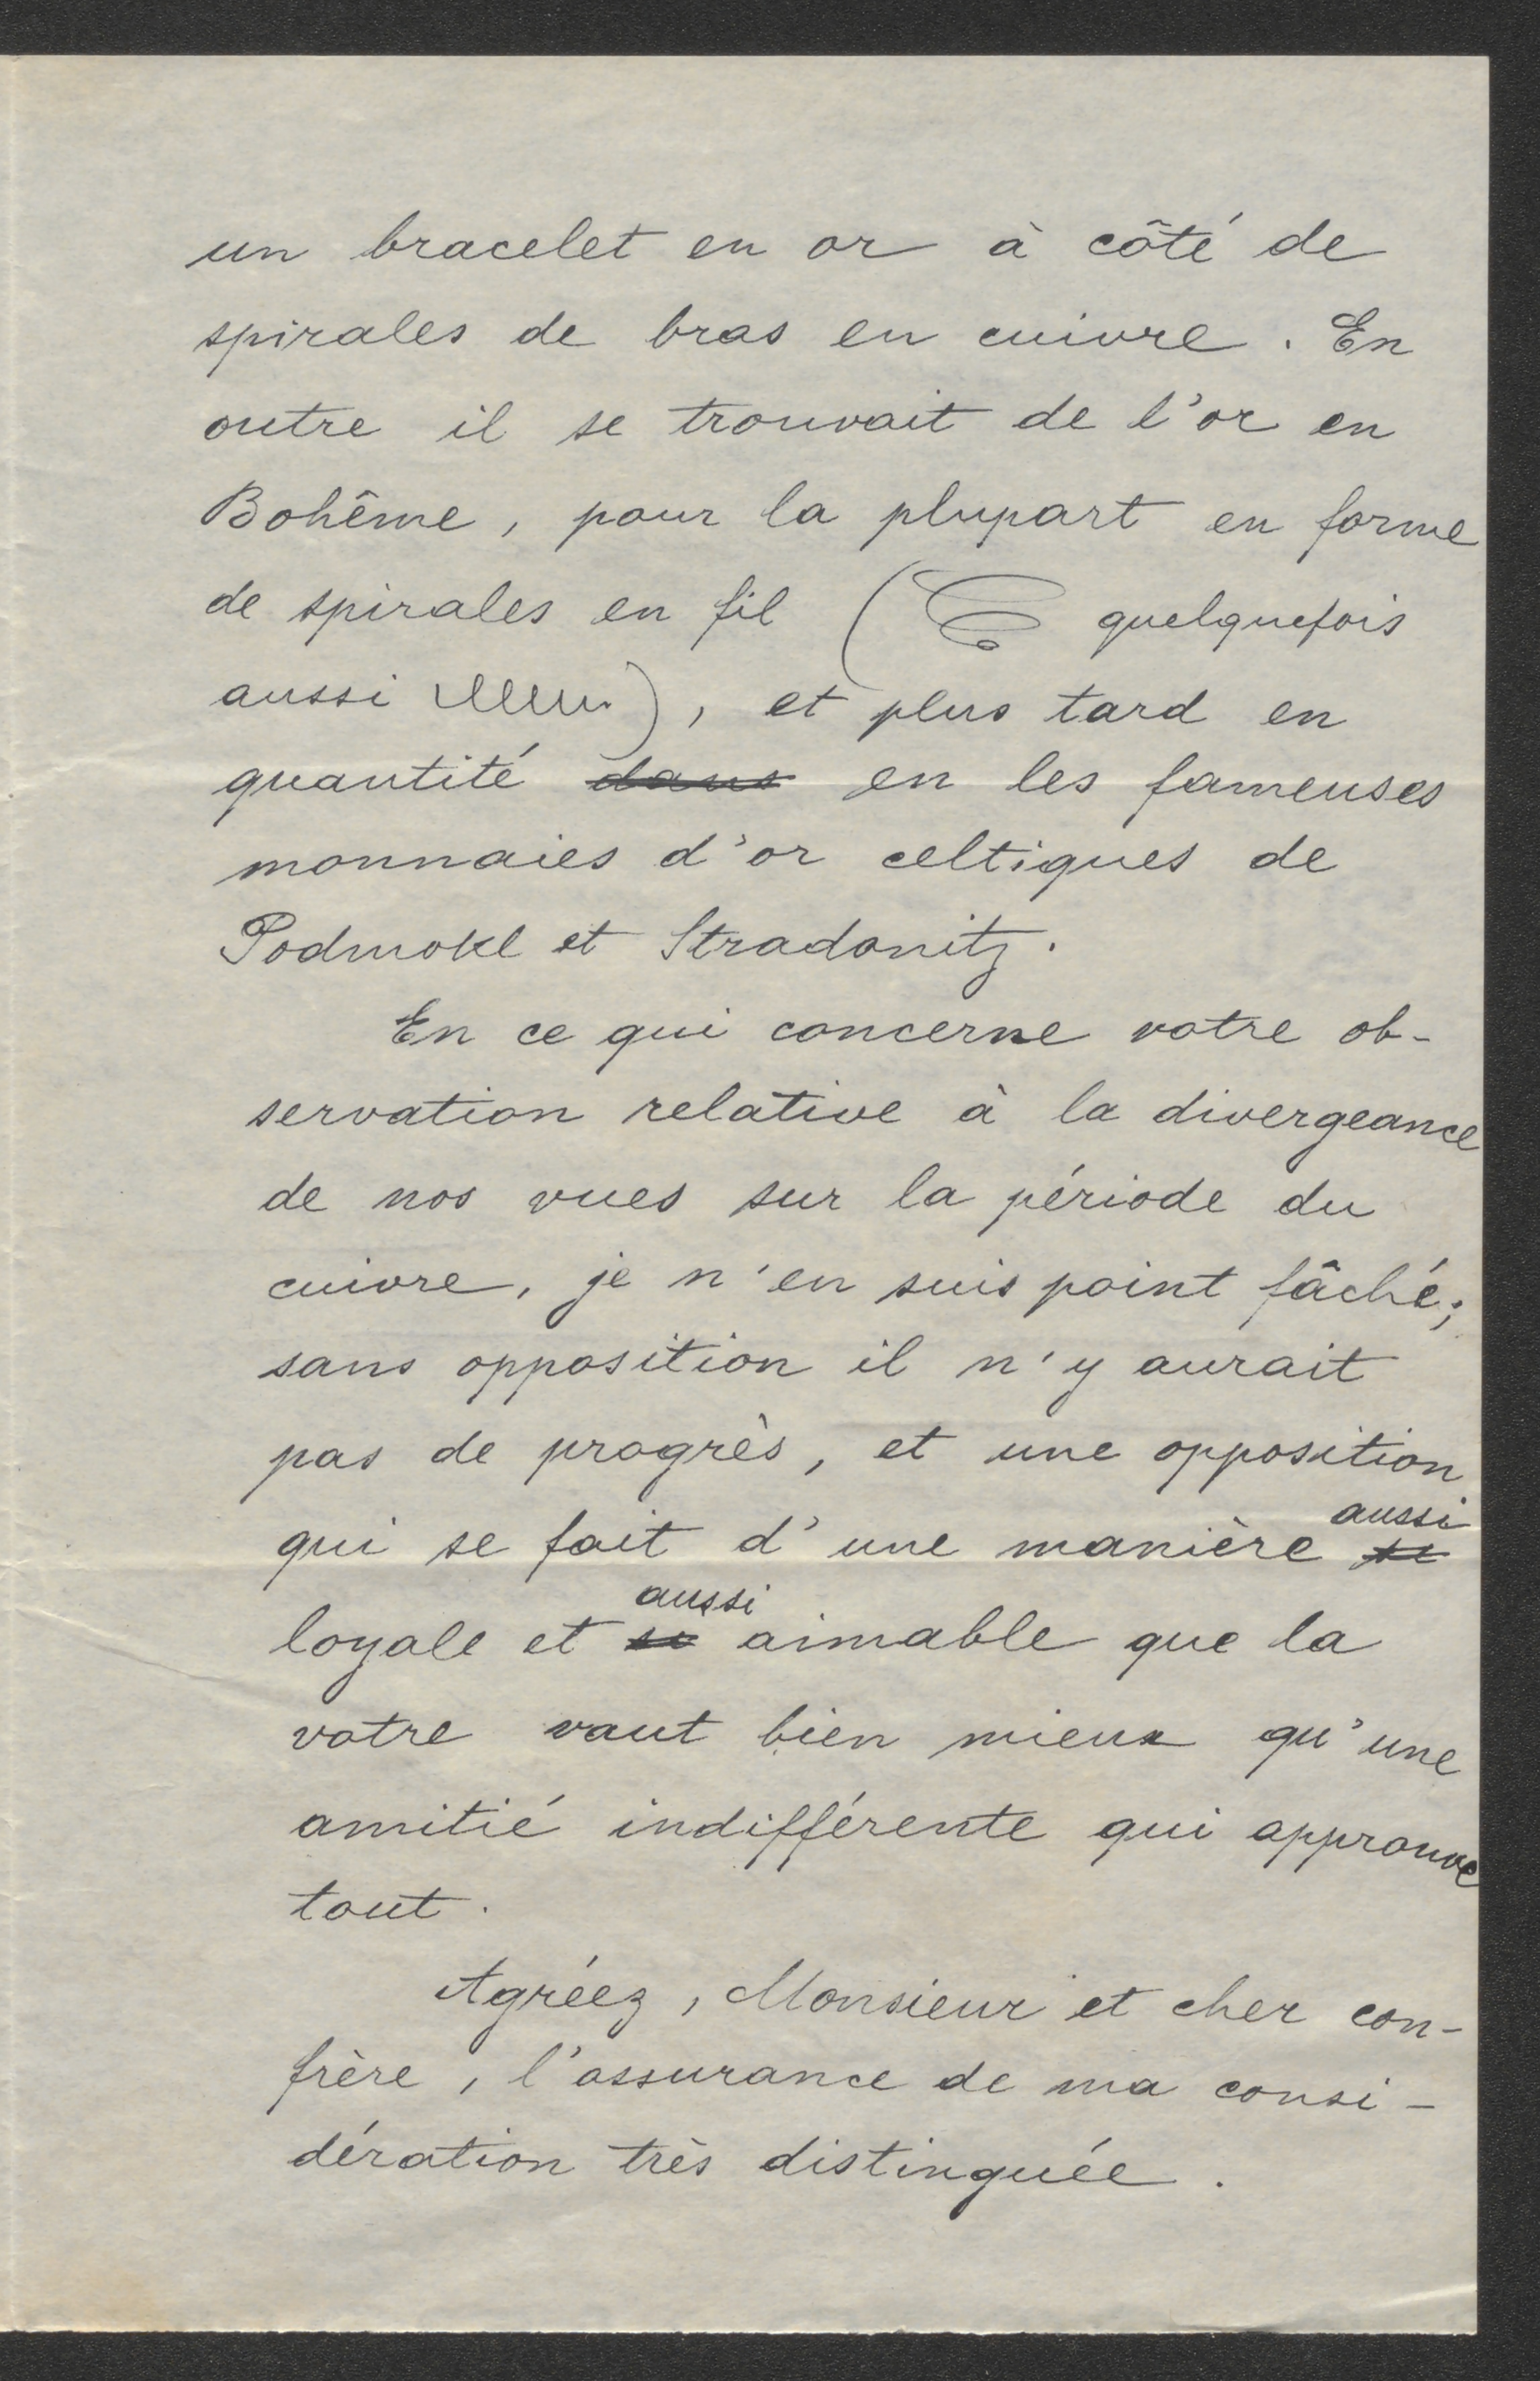 un bracelet en or à côté de
spirales de bras en cuivre. En
outre il se trouvait de l'or en
Bohême, pour la plupart en forme
de spirales en fil ( quelquefois
aussi ), et plus tard en
quantité dans en les fameuses
monnaies d'or celtiques de
Podmokl et Stradonitz.
En ce qui concerne votre ob-
servation relative à la divergeance
de nos vues sur la période du
cuivre, je n'en suis point fâché;
sans opposition il n'y aurait
pas de progrès, et une opposition
aussi
qui se fait d'une manière si
aussi
loyale et si aimable que la
votre vaut bien mieux qu'une
amitié indifférente qui approuve
tout.
Agréez, Monsieur et cher con-
frère, l'assurance de ma consi-
dération très distinguée.